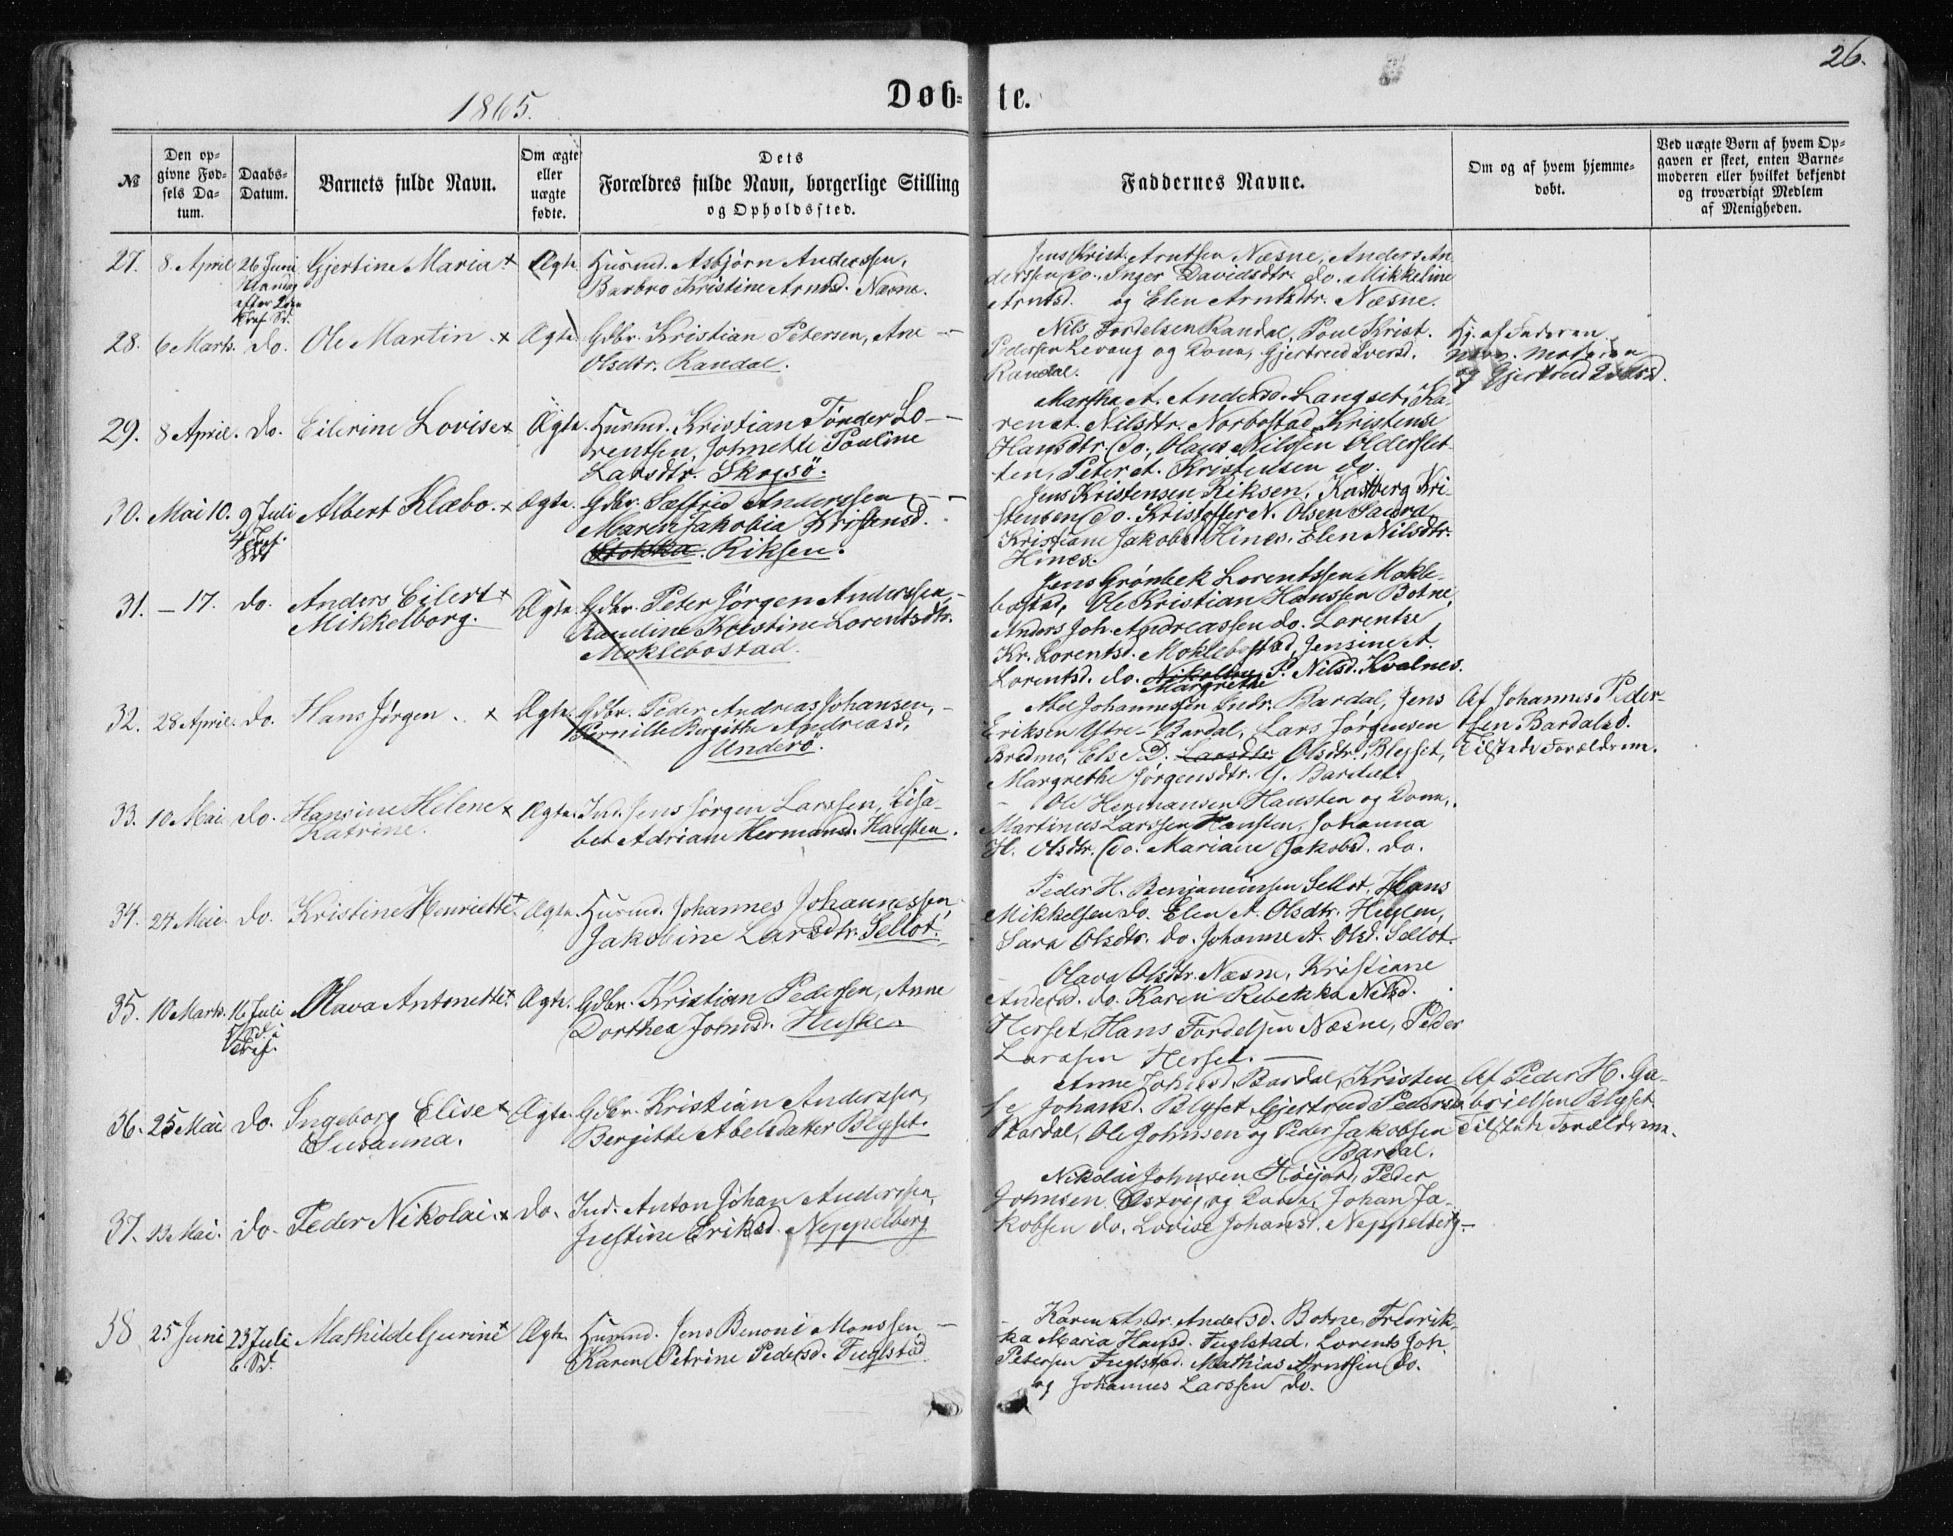 26.
1865.
Døb= te.
№
Den op=
givne Fød=
sels Da=
tum.
Daabs=
Datum.
Barnets fulde Navn.
Om ægte
eller
uægte
fødte.
Dets
Forældres fulde Navn, borgerlige Stilling
og Opholdssted.
Faddernes Navne.
Om og af hvem hjemme=
døbt.
Ved uægte Børn af hvem Op=
gaven er skeet, enten Barne=
moderen eller hvilket bekjendt
og troværdigt Medlem
af Menigheden.
27. 8 April 26 Juni
efter 2den
Gjertine Maria x Ægte. Husmd. Asbjørn Anderssen,
Barbro Kristine Arntsd. Næsne.
Jens Krist. Arntsen Næsne, Anders An
derssen do. Inger Davidsdtr. do. Mikkeline
Arntsd. og Elen Arntsdtr. Næsne.
28. 6 Marts. do. Ole Martin. x Ægte. Gdbr. Kristian Petersen, Ane —
Olsdtr. Randal.
Nils Tordelsen Randal, Poul Krist.
Pedersen Levang og Kona, Gjertrud Iversd.
Randal.
Hj. af Faderen
Moderen
og Gjertrud
29. 8 April. do. Eilerine Lovise x Ægte. Husmd. Kristian Tønder Lo-
rentsen, Johnette Pauline
Larsdtr. Skogsö.
Martha A. Andersd. Langset, Ka
ren A. Nilsdtr. Norbostad, Kristense
Hansdtr. do., Olaus Nilssen Olderslet-
ten, Peter A. Kristensen do.
30. Mai 10. 9 Juli
Albert Klæbo. x Ægte. Gdbr. Saffried Anderssen, —
Maren Jakobia Kristensd.
Stokka. Riksen.
Jens Kristensen Riksen, Kastberg Kri-
stensen do. Kristoffer N. Olsen Saura
Kristiane Jakobs. Hines. Elen Nilsdtr.
Hines.
31. — 17. do. Anders Eilert x
Mikkelborg.
Ægte. Gdbr. Peter Jørgen Anderssen, —
Rauline Kristine Lorentsdtr.
Moklebostad.
Jens Grønbek Lorentssen Mokle-
bostad, Ole Kristian Hanssen Botne,
Anders Joh. Andreassen do. Lorentse
Kr. Lorentsd. Moklebostad, Jensine A.
Lorentsd. do. Nikoline P. Nilsd. Kvalnes.
Margrethe
32. 28 April. do. Hans Jørgen. x Ægte. Gdbr. Peder Andreas Johansen, —
Pernille Birgitte Andreasd.
Underö.
Abel Johannessen Indr. Bardal, Jens
Eriksen Ytre-Bardal, Lars Jørgensen
Bredmo, Else D. Larsdtr. Olsdtr. Blesset,
Margrethe Jørgensdtr. Y. Bardal.
Af Johannes Peder-
ssen Bardalsd.
Tilstede Forældrene.
33. 10 Mai do. Hansine Helene x
Katrine.
Ægte. Ind. Jens Jørgen Larssen, Lisa-
bet Adriane Hermansd. Hansten.
Ole Hermansen Hansten og Kone,
Martinus Larssen Hansten, Johanna
H. Olsdtr. do. Mariane Jakobsd. do.
34. 24 Mai. do. Kristine Henriette x Ægte. Husmd. Johannes Johannessen
Jakobine Larsdtr. Sellot.
Peder H. Benjaminsen Sellot, Hans
Mikkelsen do. Elen A. Olsdtr.
Sara Olsdtr. do. Johanne A. Olsd. Sellot.
35. 10 Marts. 16 Juli
Olava Antonette x Ægte. Gdbr. Kristian Pedersen, Anne
Dorthea Johnsd. Huske.
Olava Olsdtr. Næsne, Kristiane
Andersd. do. Karen Rebekka Nilsd.
Herset, Hans Tordelsen Næsne, Peder
Larssen Herset. —
36. 25 Mai do. Ingeborg Elise x
Susanna.
Ægte. Gdbr. Kristian Anderssen,
Bergitte Abelsdatter Blyset.
Anne Johnsd. Bardal, Kristen-
se Johansd. Blyset, Gjertrud Pedersd.
Bardal, Ole Johnsen og Peder Jakobsen
Bardal.
Af Peder H. Ga-
brielsen Blyset.
Tilstede Forældrene.
37. 13 Mai. do. Peder Nikolai. x do. Ind. Anton Johan Anderssen,
Justine Eriksd. Neppelberg
Nikolai Johnsen Høijord, Peder
Johnsen Østvig og Johan Ja-
kobsen do. Lovise Johansd. Neppelberg.—
38 25 Juni 23 Juli
6 Sd.
Mathilde Gurine x Ægte. Husmd. Jens Benoni Monssen —
Karen Petrine Pedersd. Fuglstad
Karen A. dr. Andersd. Botne, Fredrik-
ka Maria Hansd. Fuglstad, Lorents Joh.
Petersen Fuglstad. Mathias Arntsen do.
og Johannes Larssen do.